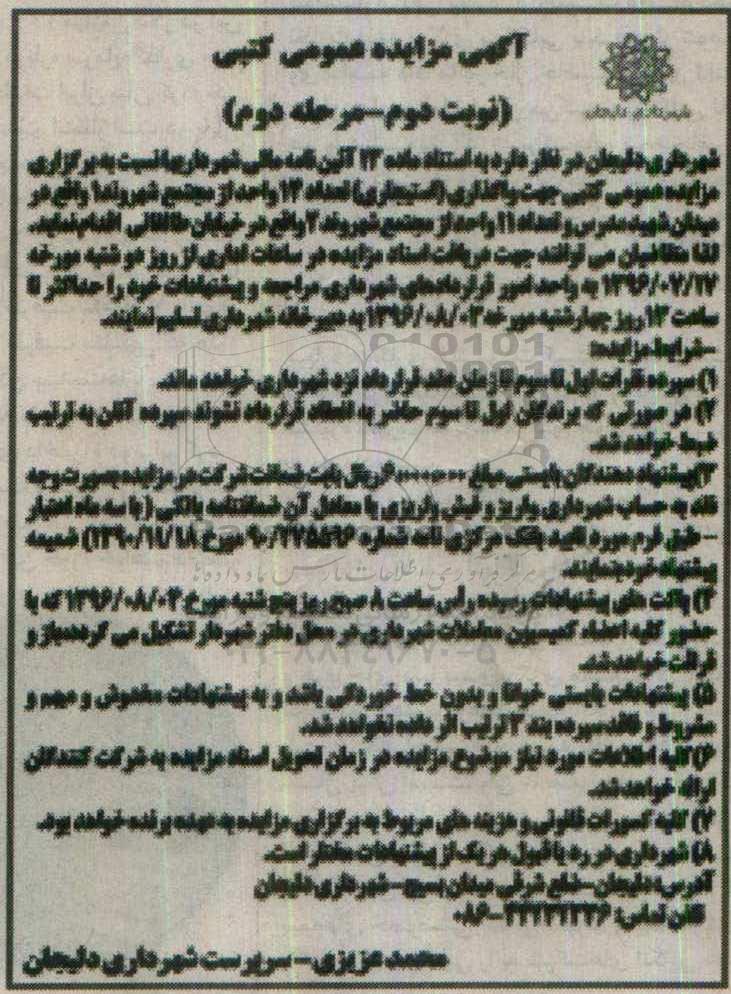 آگهی مزایده عمومی کتبی
(نوبت دوم-مرحله دوم)
شهرداری دلیجان
شهرداری دلیجان در نظر دارد به استناد ماده ۱۳ آئین نامه مالی شهرداریها نسبت به برگزاری
مزایده عمومی کتبی جهت واگذاری (استیجاری) تعداد ۱۴ واحد از مجتمع شهروند۱ واقع در
میدان شهید مدرس و تعداد ۱۱ واحد از مجتمع شهروند ۲ واقع در خیابان طالقانی اقدام نماید.
لذا متقاضیان می توانند جهت دریافت اسناد مزایده در ساعات اداری از روز دو شنبه مورخه
به واحد امور قراردادهای شهرداری مراجعه و پیشنهادات خود را حداکثر تا
ساعت ۱۳ روز چهارشنبه مورخه ۱۳۹۶/۰۸/۰۳ به دبیرخانه شهرداری تسلیم نمایند.
-شرایط مزایده:
۱) سپرده نفرات اول تا سوم تا زمان عقد قرارداد نزد شهرداری خواهد ماند.
۲) در صورتی که برندگان اول تا سوم حاضر به انعقاد قرارداد نشوند سپرده آنان به ترتیب
ضبط خواهد شد.
۳) پیشنهاد دهندگان بایستی مبلغ ریال بابت ضمانت شرکت در مزایده بصورت وجه
نقد به حساب شهرداری واریز و فیش واریزی یا معادل آن ضمانتنامه بانکی (با سه ماه اعتبار
-طبق فرم مورد تائید بانک مرکزی نامه شماره مورخ ۱۳۹۰/۱۱/۱۸) ضمیمه
پیشنهاد خود نمایند.
۴) پاکت های پیشنهادات رسیده رأس ساعت ۸ صبح روز پنج شنبه مورخ ۱۳۹۶/۰۸/۰۴ که با
حضور کلیه اعضاء کمیسیون معاملات شهرداری در محل دفتر شهردار تشکیل می گردد باز و
قرائت خواهد شد.
۵) پیشنهادات بایستی خوانا و بدون خط خوردگی باشد و به پیشنهادات مخدوش و مبهم و
مشروط و فاقد سپرده بند ۳ ترتیب اثر داده نخواهد شد.
۶) کلیه اطلاعات مورد نیاز موضوع مزایده در زمان تحویل اسناد مزایده به شرکت کنندگان
ارائه خواهد شد.
۷) کلیه کسورات قانونی و هزینه های مربوط به برگزاری مزایده به عهده برنده خواهد بود.
۸) شهرداری در رد یا قبول هر یک از پیشنهادات مختار است.
آدرس: دلیجان-ضلع شرقی میدان بسیج-شهرداری دلیجان
تلفن تماس:
محمد عزیزی-سرپرست شهرداری دلیجان